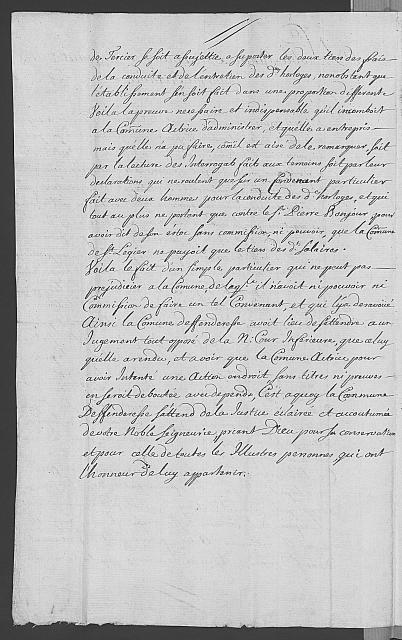 de Tercier se soit assujettie a suporter les deux tiers des frais
de la conduite et de l'entretien des d.ts horloges, nonobstant que
l'établissement s'en soit fait dans une proportion differente
Voila la preuve necessaire et indispensable qu'il incomboit
a la Comune Actrice d'administrer, et qu'elle a entrepris
mais qu'elle n'a pu faire, come il est aisé de le remarquer, soit
par la lecture des Interrogats faits aux temoins soit par leur
declarations, qui ne roulent que sur un Convenant particulier
fait avec deux hommes pour la conduite des d.ts horloges, et qui
tout au plus ne portent que contre le S.r Pierre Bonjour pour
avoir dit de son estoc sans commission, ni pouvoir, que la Comune
de S.t Legier ne payoit que le tiers des d.ts Salaires.
Voila le fait d'un simple particulier qui ne peut pas
prejudicier a la Comune, de la q.le il n'avoit ni pouvoir ni
Commission de faire un tel Convenant, et qui l'a desavoué
Ainsi la Comune deffenderesse avoit lieu de s'attendre a un
Jugement tout oposé de la N. Cour Inferieure, que celuy
qu'elle a rendu, et a voir que la Comune Actrice pour
avoir Intenté une Action en droit sans titres ni preuves
en seroit deboutée avec depends, C'est a quoy la Commune
Deffenderesse s'attend de la Justice éclairée et accoutumée
de votre Noble Seigneurie priant Dieu pour sa conservation
et pour celle de toutes les Illustres personnes, qui ont
l'honneur d'eluy appartenir.